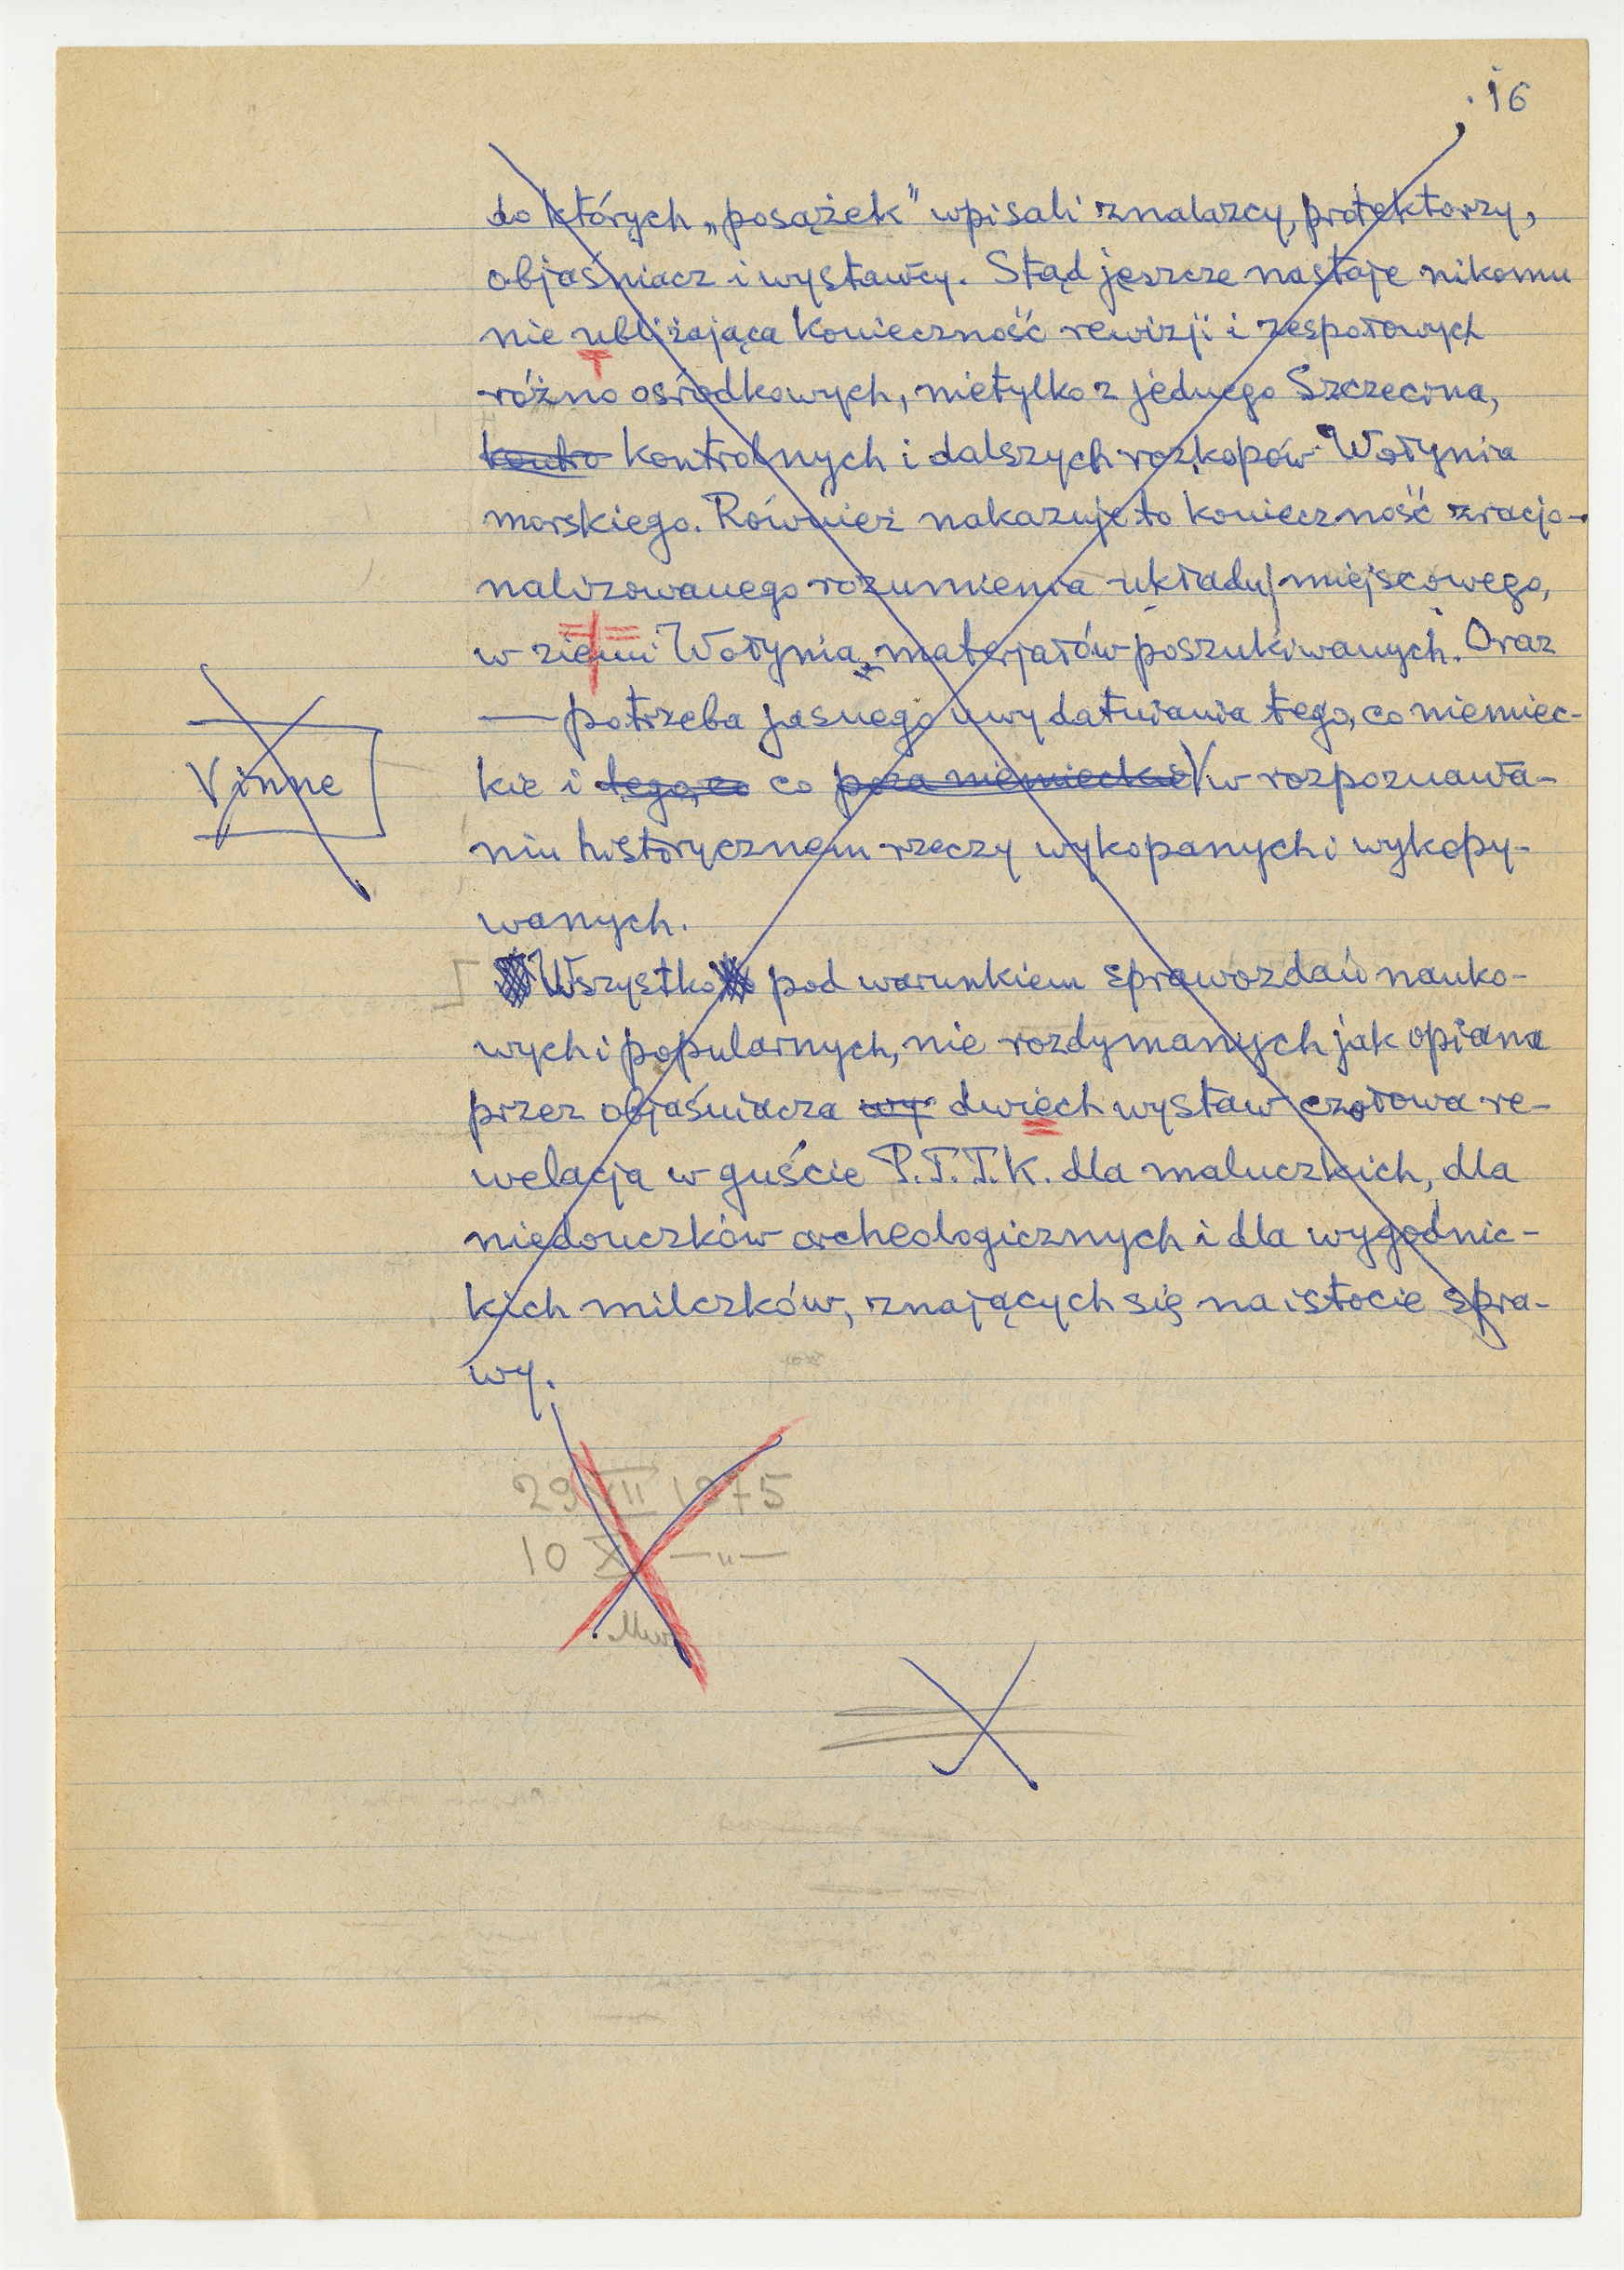 16
do których „posążek” wpisali znalazcy, protektorzy,
objaśniacz i wystawcy. Stąd jeszcze nastaje nikomu
nie ubliżająca konieczność rewizji i zespołowych
różno ośrodkowych, nietylko z jednego Szczecina,
kontro kontrolnych i dalszych rozkopów Wołynia
morskiego. Również nakazuje to konieczność zracjo-
nalizowanego rozumienia układu miejscowego,
w ziemi Wołynia, materjałów poszukiwanych. Oraz
— potrzeba jasnego uwydatniania tego, co niemiec-
kie i tego, co co poza niemieckie V w rozpoznawa-
V inne
niu historycznem rzeczy wykopanych i wykopy-
wanych.
Wszystko pod warunkiem sprawozdań nauko-
wych i popularnych, nie rozdymanych jak opiana
przez objaśniacza wy dwiech wystaw czołowa re-
welacja w guście P.T.T.K. dla maluczkich, dla
niedouczków archeologicznych i dla wygodnic-
kich milczków, znających się na istocie spra-
wy.
29 VII 1975
10 X —„—